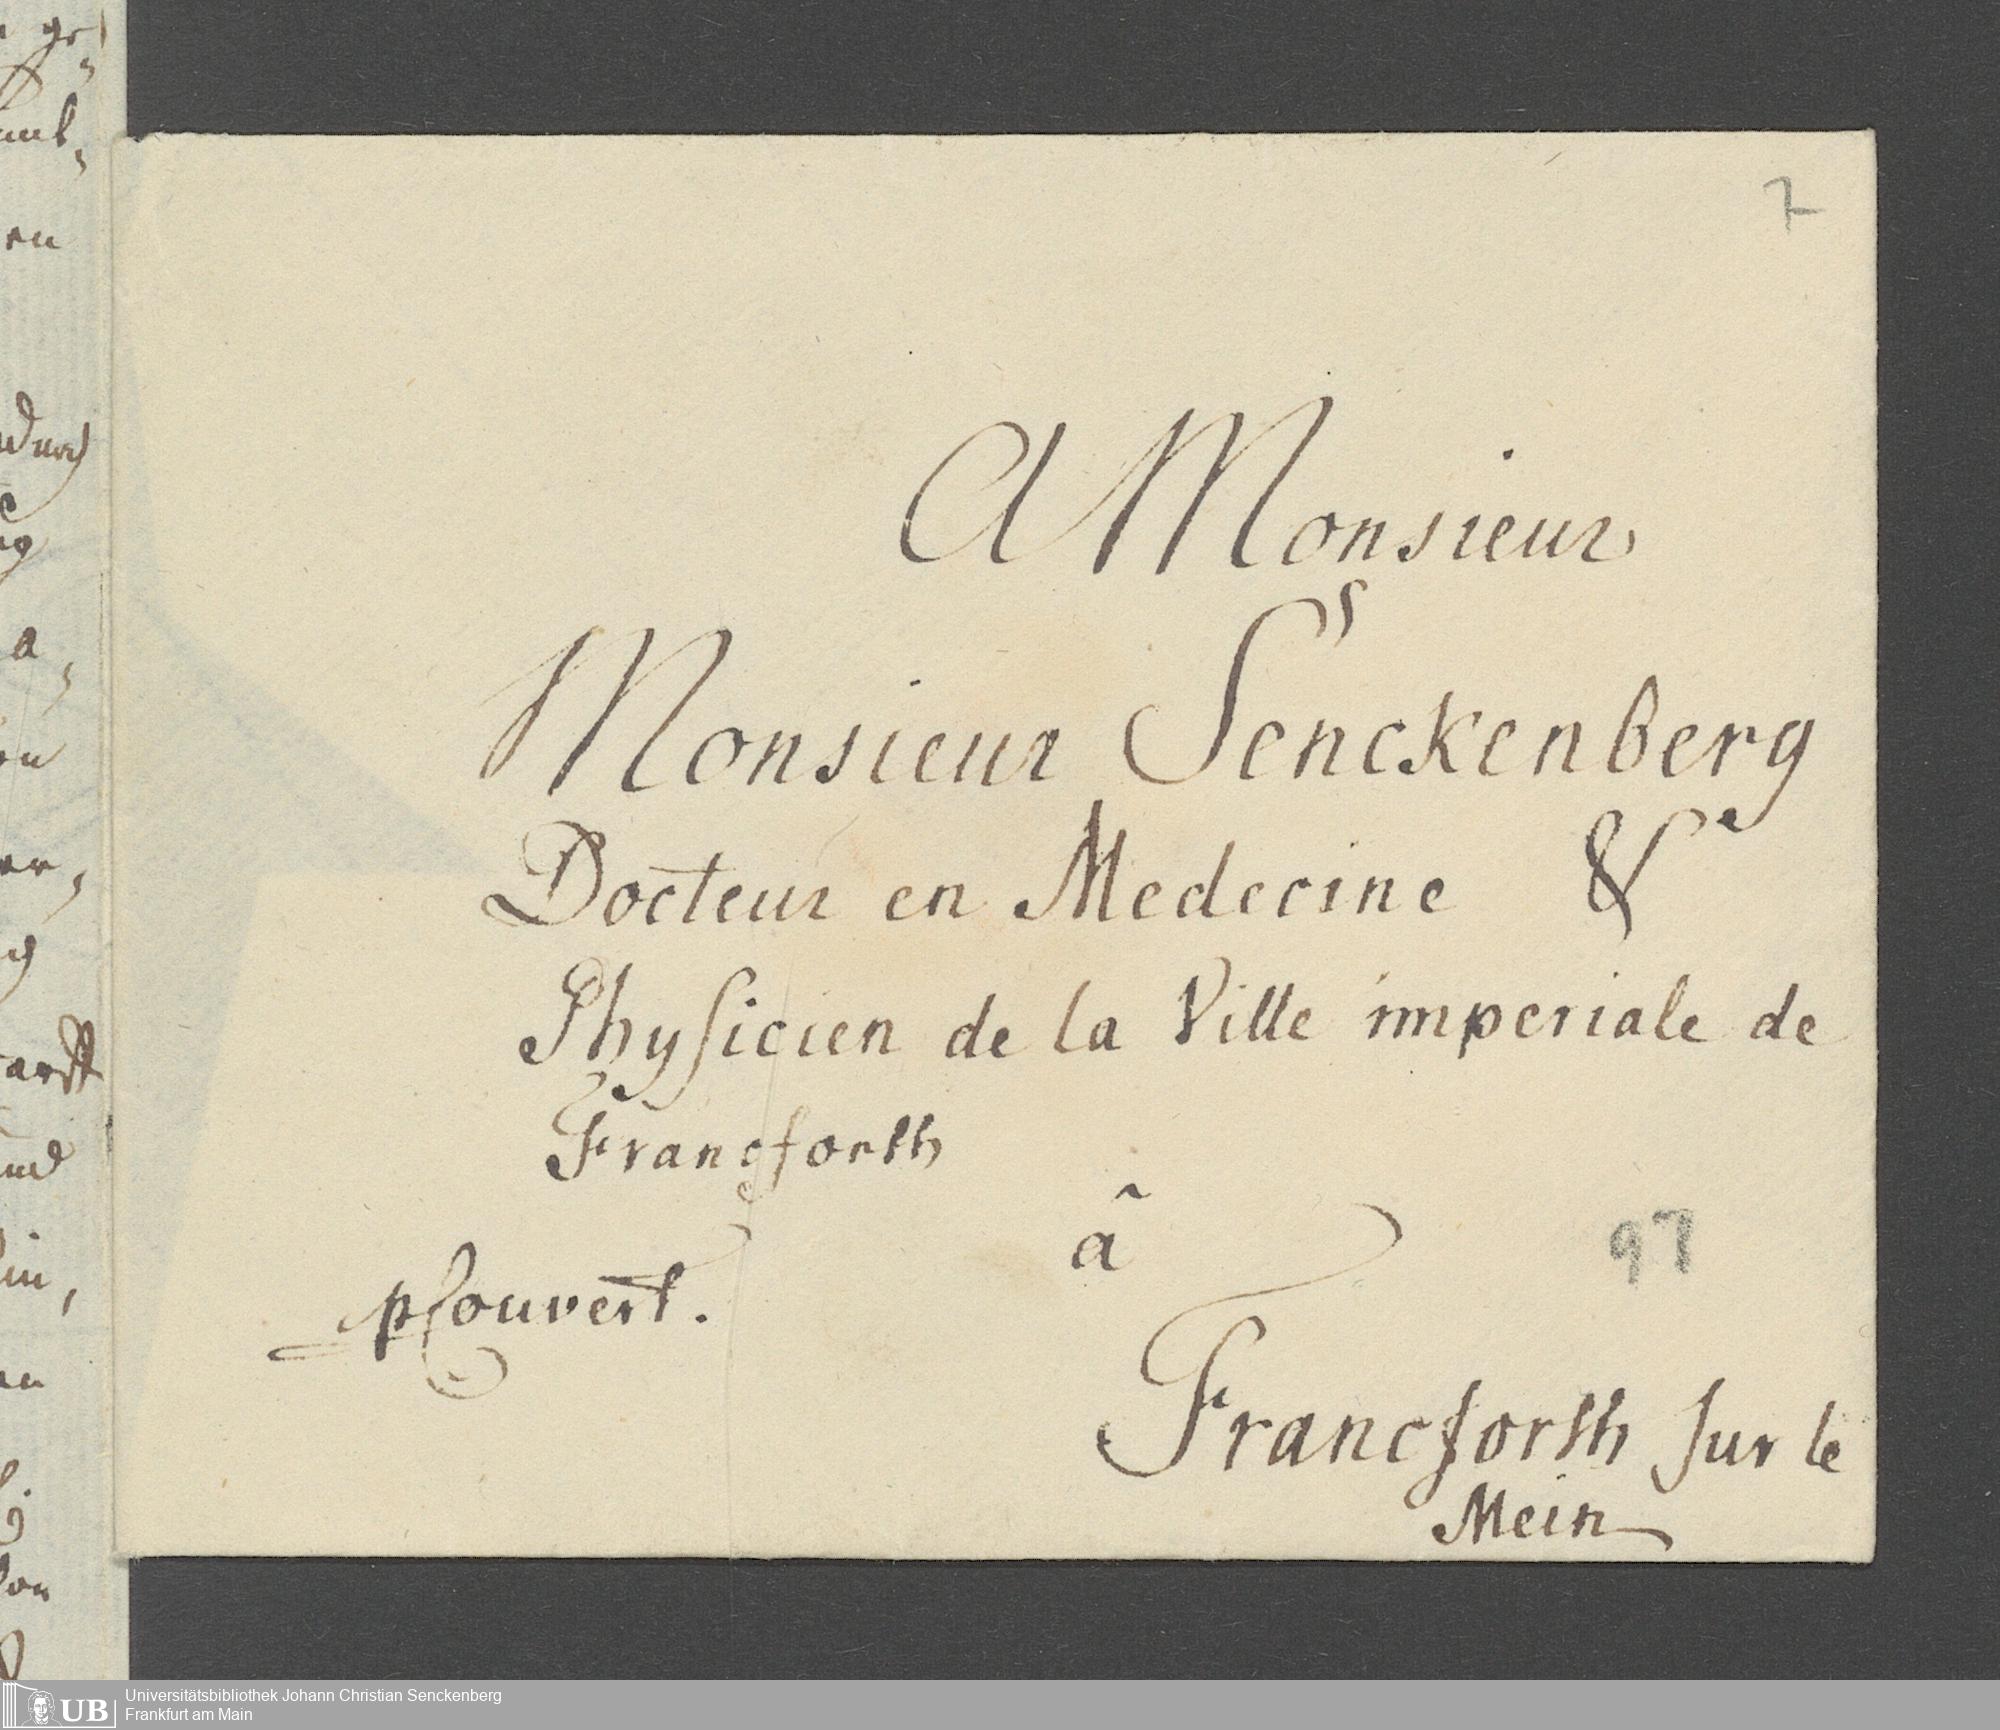 7
A Monsieur
Monsieur Senckenberg
Docteur en Medecine &
Physicien de la Ville imperiale de
Francforth
â
97
p Couvert.
Francforth sur le
Mein
UB
Universitätsbibliothek Johann Christian Senckenberg
Frankfurt am Main